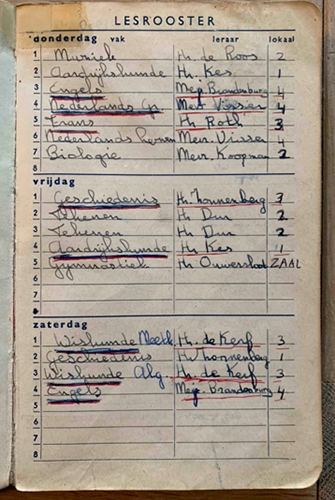 LESROOSTER
donderdag vak leraar lokaal
1 Muziek Hr. de Roos 2
2 Aardrijkskunde Hr. Kes 1
3 Engels Mej. Brandenburg 4
4 Nederlands Mevr. Visser 4
5 Frans Hr Roth 3
6 Nederlands Mevr. Visser 4
7 Biologie Mevr. Koopman 2
8
vrijdag
1 Geschiedenis Hr. Zonnenberg 3
2 Tekenen Hr Dun 2
3 Tekenen Hr Dun 2
4 Aardrijkskunde Hr Kes 1
5 Gymnastiek Hr ZAAL
6
7
8
zaterdag
1 Wiskunde Meetk. Hr. de Kerf 3
2 Geschiedenis Hr Zonnenberg 1
3 Wiskunde Alg. Hr. de Kerf 3
4 Engels Mej. Brandenburg 4
5
6
7
8